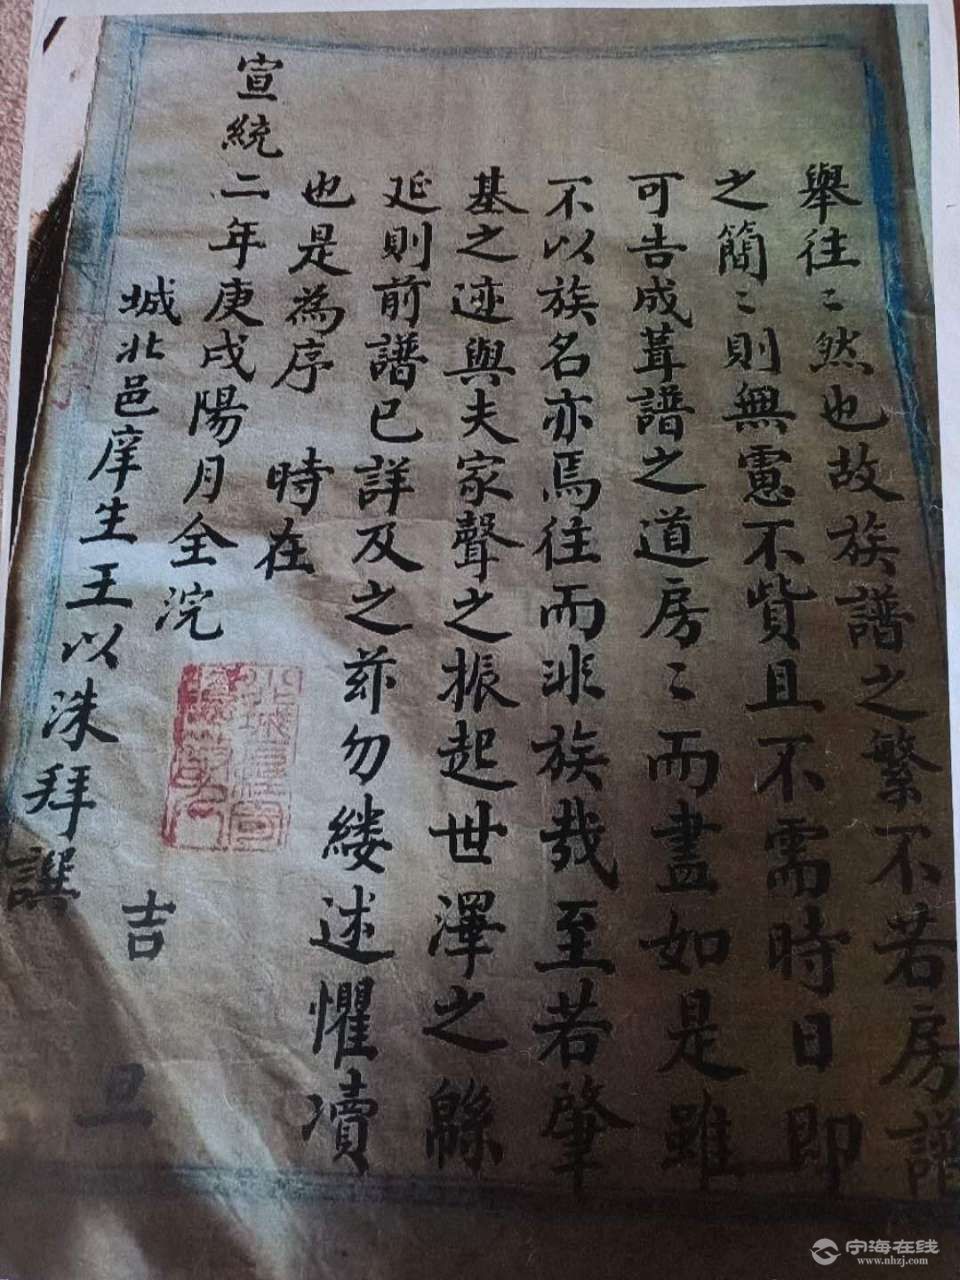 舉往〻然也故族譜之繁不若房譜
之簡〻則無慮不貲且不需時日即
可告成葺譜之道房〻而盡如是雖
不以族名亦焉往而非族哉至若肇
基之迹與夫家聲之振起世澤之緜
延則前譜已詳及之茲勿縷述懼瀆
也是為序　時在
宣統二年庚戌陽月全浣　吉　旦
城北邑庠生王以洙拜譔
宁海在线
www.nhzj.com